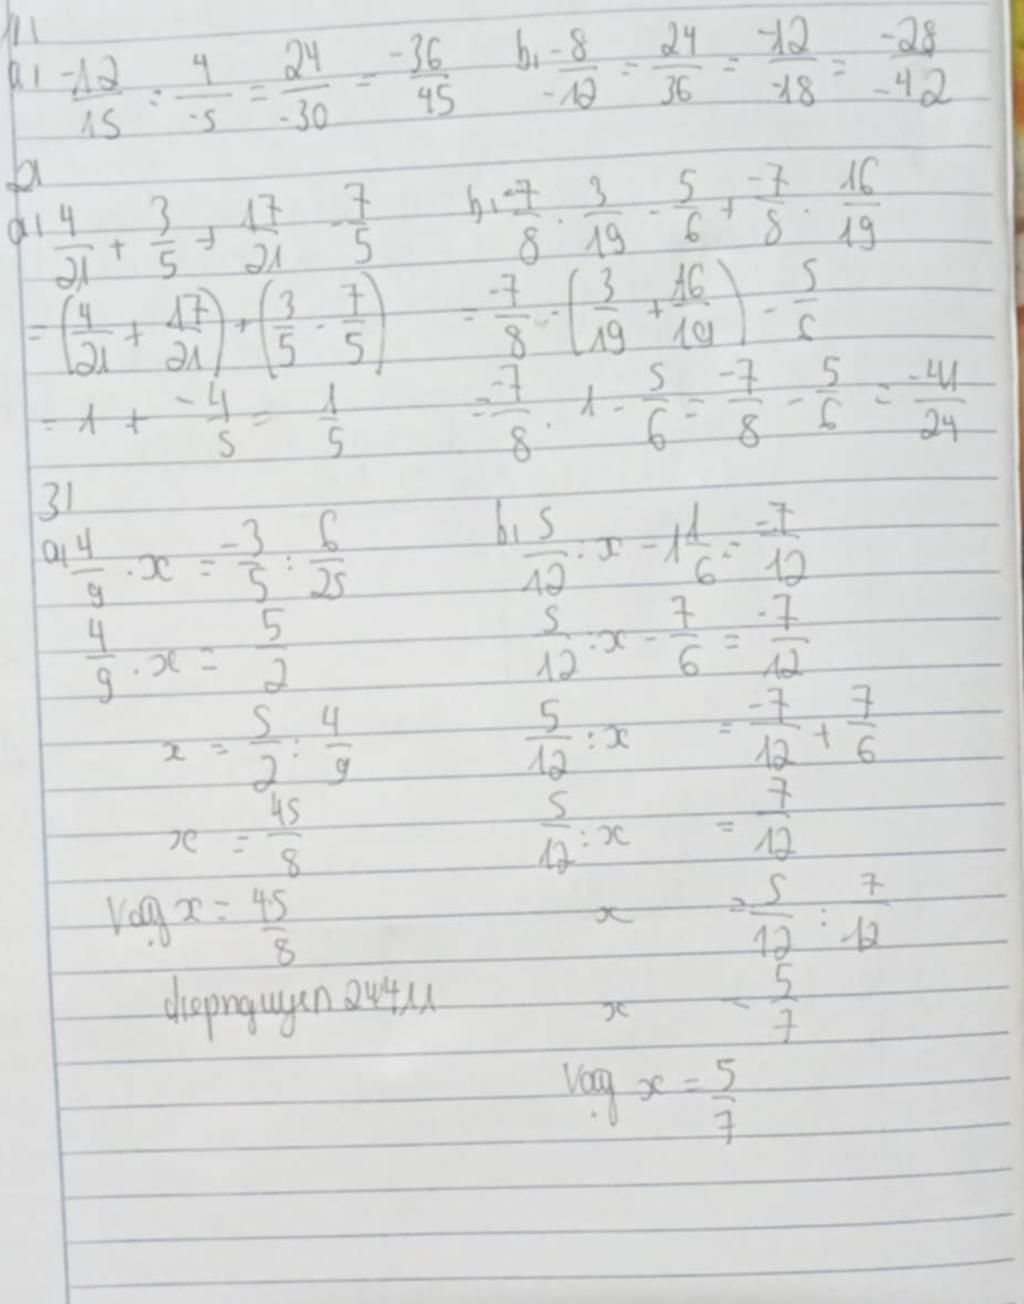 1)
a, -12/15 = 4/-5 = 24/-30 = -36/45
b, -8/-12 = 24/36 = -12/-18 = -28/-42
2)
a, 4/21 + 3/5 + 17/21 - 7/5
= (4/21 + 17/21) + (3/5 - 7/5)
= 1 + -4/5 = 1/5
b, -7/8 . 3/19 - 5/6 + -7/8 . 16/19
= -7/8 . (3/19 + 16/19) - 5/6
= -7/8 . 1 - 5/6 = -7/8 - 5/6 = -41/24
3)
a, 4/9 . x = -3/5 : 6/25
4/9 . x = 5/2
x = 5/2 : 4/9
x = 45/8
Vậy x = 45/8
diepnguyen 24411
b, 5/12 : x - 1 1/6 = -7/12
5/12 : x - 7/6 = -7/12
5/12 : x = -7/12 + 7/6
5/12 : x = 7/12
x = 5/12 : 7/12
x = 5/7
Vậy x = 5/7